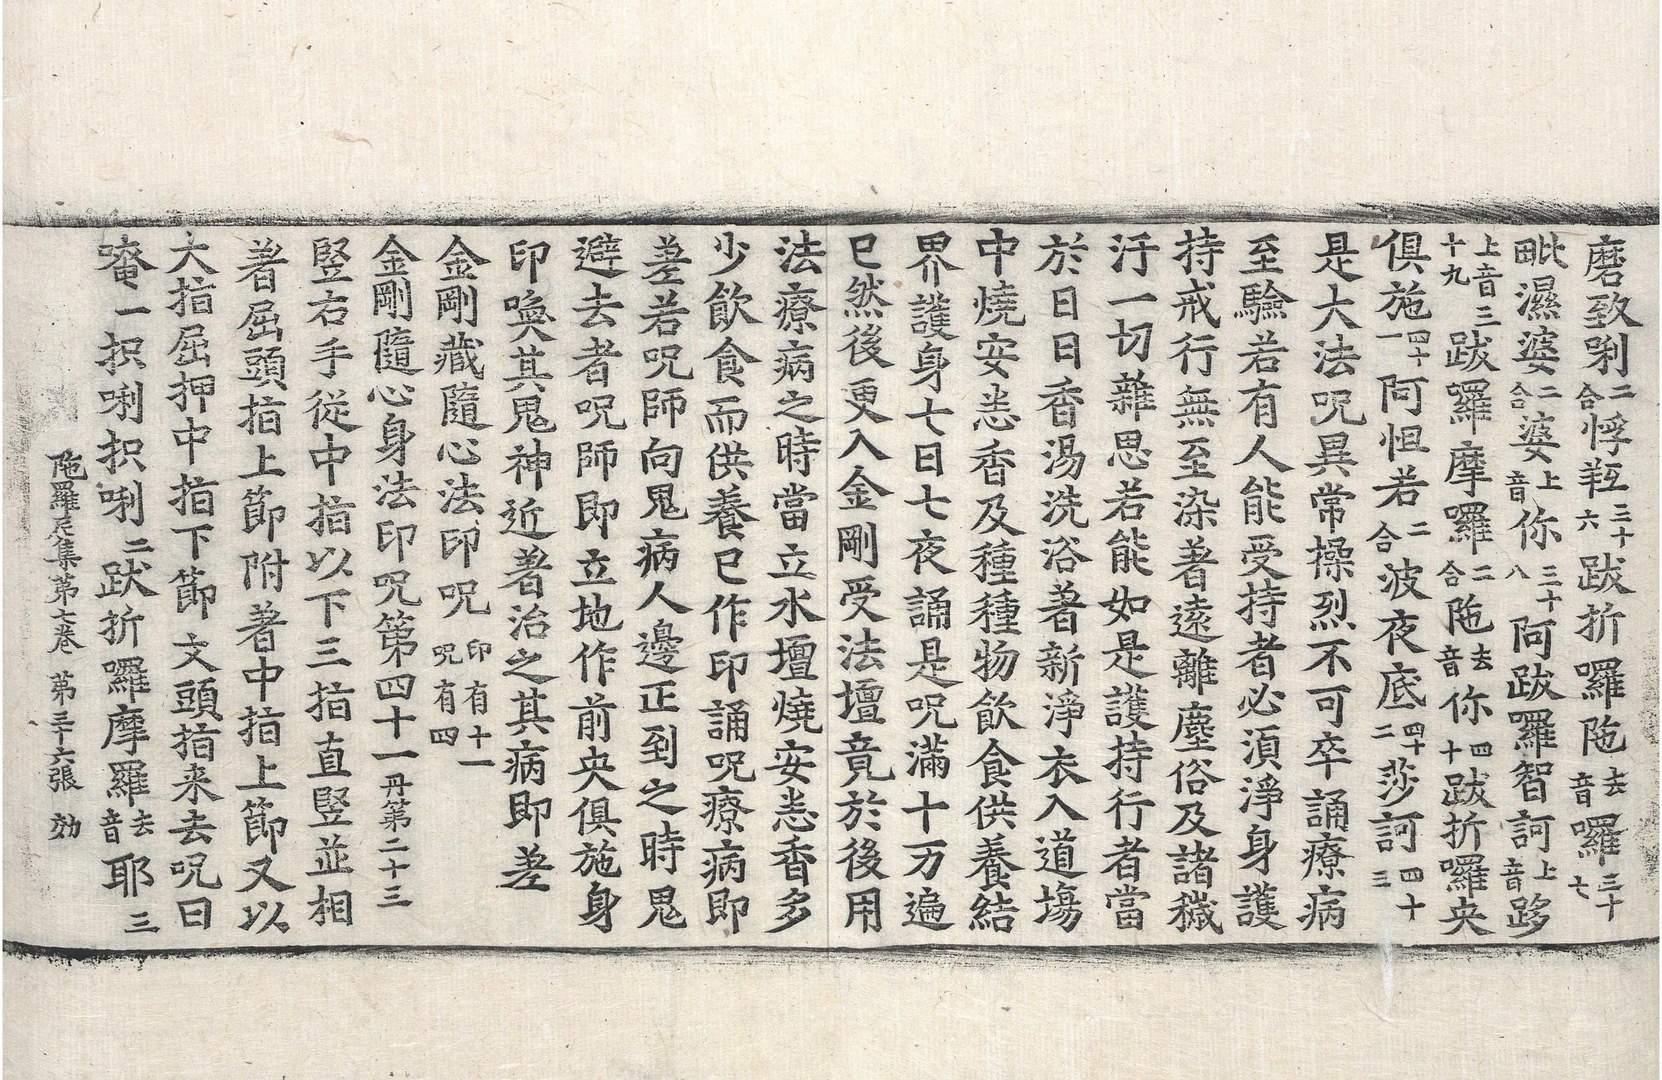 磨致唎二合悖䍧三十六跋折囉陁去音囉三十七
毗濕婆二合婆上音你三十八阿跋羅智訶上音跢
上音三十九跋囉摩囉二合陁去音你四十跋折囉央
俱施四十一阿怛若二合波夜底四十二莎訶四十三
是大法呪異常操烈不可卒誦療病
至驗若有人能受持者必湏淨身護
持戒行無至染著遠離塵俗及諸穢
汙一切雜思若能如是護持行者當
於日日香湯洗浴著新淨衣入道場
中燒安悉香及種種物飲食供養結
界護身七日七夜誦是呪滿十万遍
已然後更入金剛受法壇竟於後用
法療病之時當立水壇燒安悉香多
少飲食而供養已作印誦呪療病即
差若呪師向鬼病人邊正到之時鬼
避去者呪師即立地作前央俱施身
印喚其鬼神近著治之其病即差
金剛藏隨心法印呪印有十一呪有四
金剛隨心身法印呪第四十一丹第二十三
竪右手從中指以下三指直竪並相
著屈頭指上節附著中指上節又以
大指屈押中指下節文頭指来去呪曰
唵一抧唎抧唎二跋折囉摩羅去音耶三
陁羅尼集第七卷 第三十六張 効